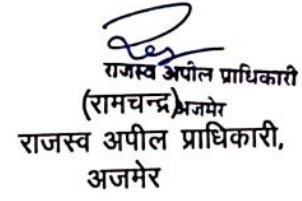 राजस्व अपील प्राधिकारी
(रामचन्द्र)अजमेर
राजस्व अपील प्राधिकारी,
अजमेर